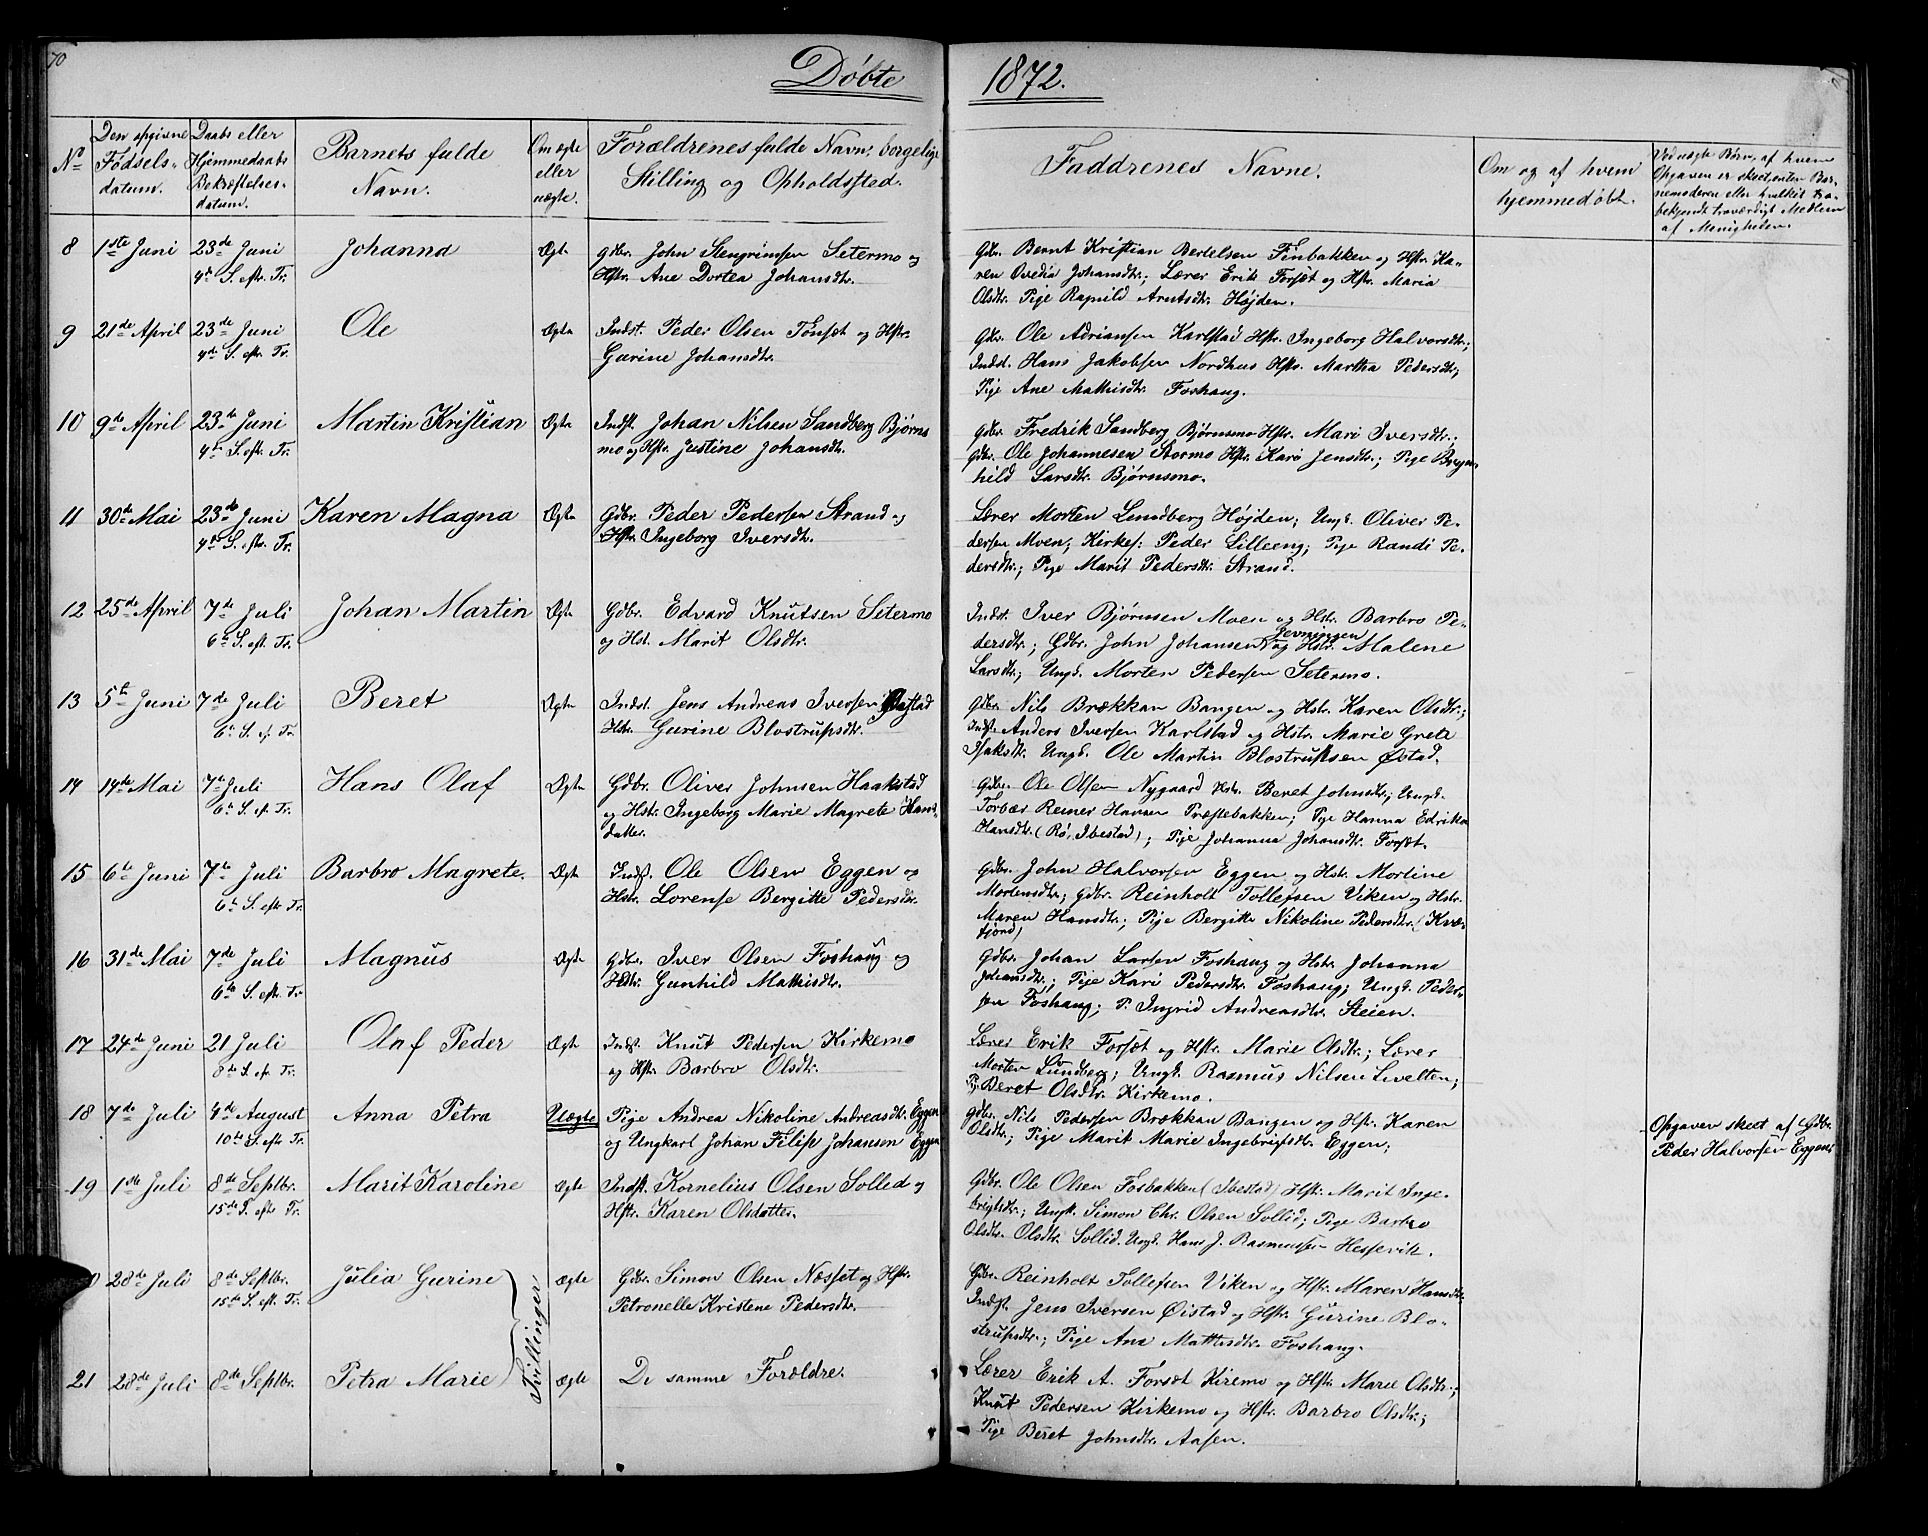 70
Døbte 1872.
No
Den opgivne Fødsels-datum.
Daabs eller Hjemmedaabs Bekræftelses-datum.
Barnets fulde Navn.
Om ægte eller uægte.
Forældrenes fulde Navn, borgelige Stilling og Opholdssted.
Faddrenes Navne.
Om og af hvem hjemmedøbt.
Ved uægte Børn, af hvem Opgaven er skeet, enten Barnemoderen eller hvilket bekjendt troværdigt Medlem af Menigheden.
8 1ste Juni 23de Juni Johanna Ægte Gdbr. John Stengrimsen Setermo og
4de S. eft. Tr. Hstr. Ane Dortea Johansdtr.
Gdbr. Bernt Kristian Bertelsen Finbakken og Hstr. Ka-
ren Ovedia Johansdtr; Lærer Erik Forsæt og Hstr. Maria
Olsdtr. Pige Ragnild Arntsdtr. Højden.
9 21de April 23de Juni Ole Ægte Indst. Peder Olsen Tønsæt og Hstr.
4de S. eft. Tr. Gurine Johansdtr.
Gdbr. Ole Adriansen Karlstad Hstr. Ingeborg Halvorsdtr;
Indst. Hans Jakobsen Nordhus Hstr. Martha Pedersdtr;
Pige Ane Mathisdtr. Foshaug.
10 9de April 23de Juni Martin Kristian Ægte Indst. Johan Nilsen Sandberg Bjørns
4de S. eft. Tr. mo og Hstr. Justine Johansdtr.
Gdbr. Fredrik Sandberg Bjørnsmo Hstr. Mari Iversdtr;
Gdbr. Ole Johannesen Stormo Hstr. Kari Jensdtr; Pige Bryn
hild Larsdtr. Bjørnsmo.
11 30te Mai 23de Juni Karen Magna Ægte Gdbr. Peder Pedersen Strand og
4de S. eft. Tr. Hstr. Ingeborg Iversdtr.
Lærer Morten Lundberg Højden; Ungk. Oliver Pe-
dersen Moen; Kirkes: Peder Lilleeng; Pige Randi Pe-
dersdtr; Pige Marit Pedersdtr. Strand.
12 25de April 7de Juli Johan Martin Ægte Gdbr. Edvard Knutsen Setermo
6te S. eft. Tr. og Hst. Marit Olsdtr.
Indst. Iver Bjørnsen Moen og Hstr. Barbro Pe-
dersdtr; Gdbr. John Johansen Jevningen og Hstr. Malene
Larsdtr; Ungk. Morten Pedersen Setermo.
13 5te Juni 7de Juli Beret Ægte Indst. Jens Andreas Iversen Øistad
6te S. ef. Tr. Hstr. Gurine Blostrupsdtr.
Gdbr. Nils Brækkan Bangen og Hstr. Karen Olsdtr;
Indst. Anders Iversen Karlstad og Hstr. Marie Grete
Isaksdtr. Ungk. Ole Martin Blostrupsen Østad.
14 14de Mai 7de Juli Hans Olaf Ægte Gdbr. Oliver Johnsen Haakstad
6te S. ef. Tr. og Hstr. Ingeborg Marie Magrete Hans
datter.
Gdbr. Ole Olsen Nygaard Hstr. Beret Johnsdtr; Ungk.
Torbær Reiner Hansen Præstebakken; Pige Hanna Edrika
Hansdtr. (Rø, Ibestad); Pige Johanna Johansdtr. Forsæt.
15 6te Juni 7de Juli Barbro Magrete. Ægte Indst. Ole Olsen Eggen og
6te S. eft. Tr. Hstr. Lorense Bergitte Pedersdtr.
Gdbr. John Halvorsen Eggen og Hstr. Mortine
Mortensdtr; Gdbr. Reinholt Tollefsen Viken og Hstr.
Maren Hansdtr; Pige Bergitte Nikoline Pedersdtr. (Kvæ-
fjord)
16 31de Mai 7de Juli Magnus Ægte Gdbr. Iver Olsen Foshaug og
6te S. eft. Tr. Hstr. Gunhild Mathisdtr.
Gdbr. Johan Larsen Foshaug og Hstr. Johanna
Johansdtr; Pige Kari Pedersdtr. Foshaug; Ungk. Peder-
sen Foshaug; P. Ingrid Andreasdtr. Steien.
17 24de Juni 21 Juli Olaf Peder Ægte Indst. Knut Pedersen Kirkemo
8de S. ef. Tr. og Hstr. Barbro Olsdtr.
Lærer Erik Forsæt og Hstr. Marie Olsdtr; Lærer
Morten Lundberg; Ungk. Rasmus Nilsen Livelten;
Pi. Beret Olsdtr. Kirkemo.
18 7de Juli 4de August Anna Petra Uægte Pige Andrea Nikoline Andreasdtr. Eggen
10de S. eft. Tr. og Ungkarl Johan Filip Johansen Eggen
Gdbr. Nils Pedersen Brækkan Bangen og Hstr. Karen
Olsdtr; Pige Marit Marie Ingebrigtsdtr. Eggen;
Opgaven skeet af Gdbr.
Peder Halvorsen Eggen
19 1ste Juli 8de Septbr. Marit Karoline Ægte Indst. Kornelius Olsen Sollid og
15de S. eft. Tr. Hstr. Karen Olsdatter.
Gdbr. Ole Olsen Fosbakken (Ibestad) Hstr. Marit Inge-
brigtsdtr; Ungk. Simon Chr. Olsen Sollid; Pige Barbro
Olsdtr. Olsdtr. Sollid. Ungk. Hans J. Rasmussen Hessevik.
28de Juli 8de Septbr. Julia Gurine Tvillinger ægte Gdbr. Simon Olsen Næsset og Hstr.
15de S. eft. Tr. Petronelle Kristene Pedersdtr.
Gdbr. Reinholt Tollefsen Viken og Hstr. Maren Hansdtr.
Indst. Jens Iversen Øistad og Hstr. Gurine Blo-
strupsdtr; Pige Ane Mathisdtr. Foshaug.
21 28de Juli 8de Septbr. Petra Marie ægte De samme Forældre.
Lærer Erik A. Forsæt Kiremo og Hstr. Marie Olsdtr;
Knut Pedersen Kirkemo og Hstr. Barbro Olsdtr;
Pige Beret Johnsdtr. Aasen.